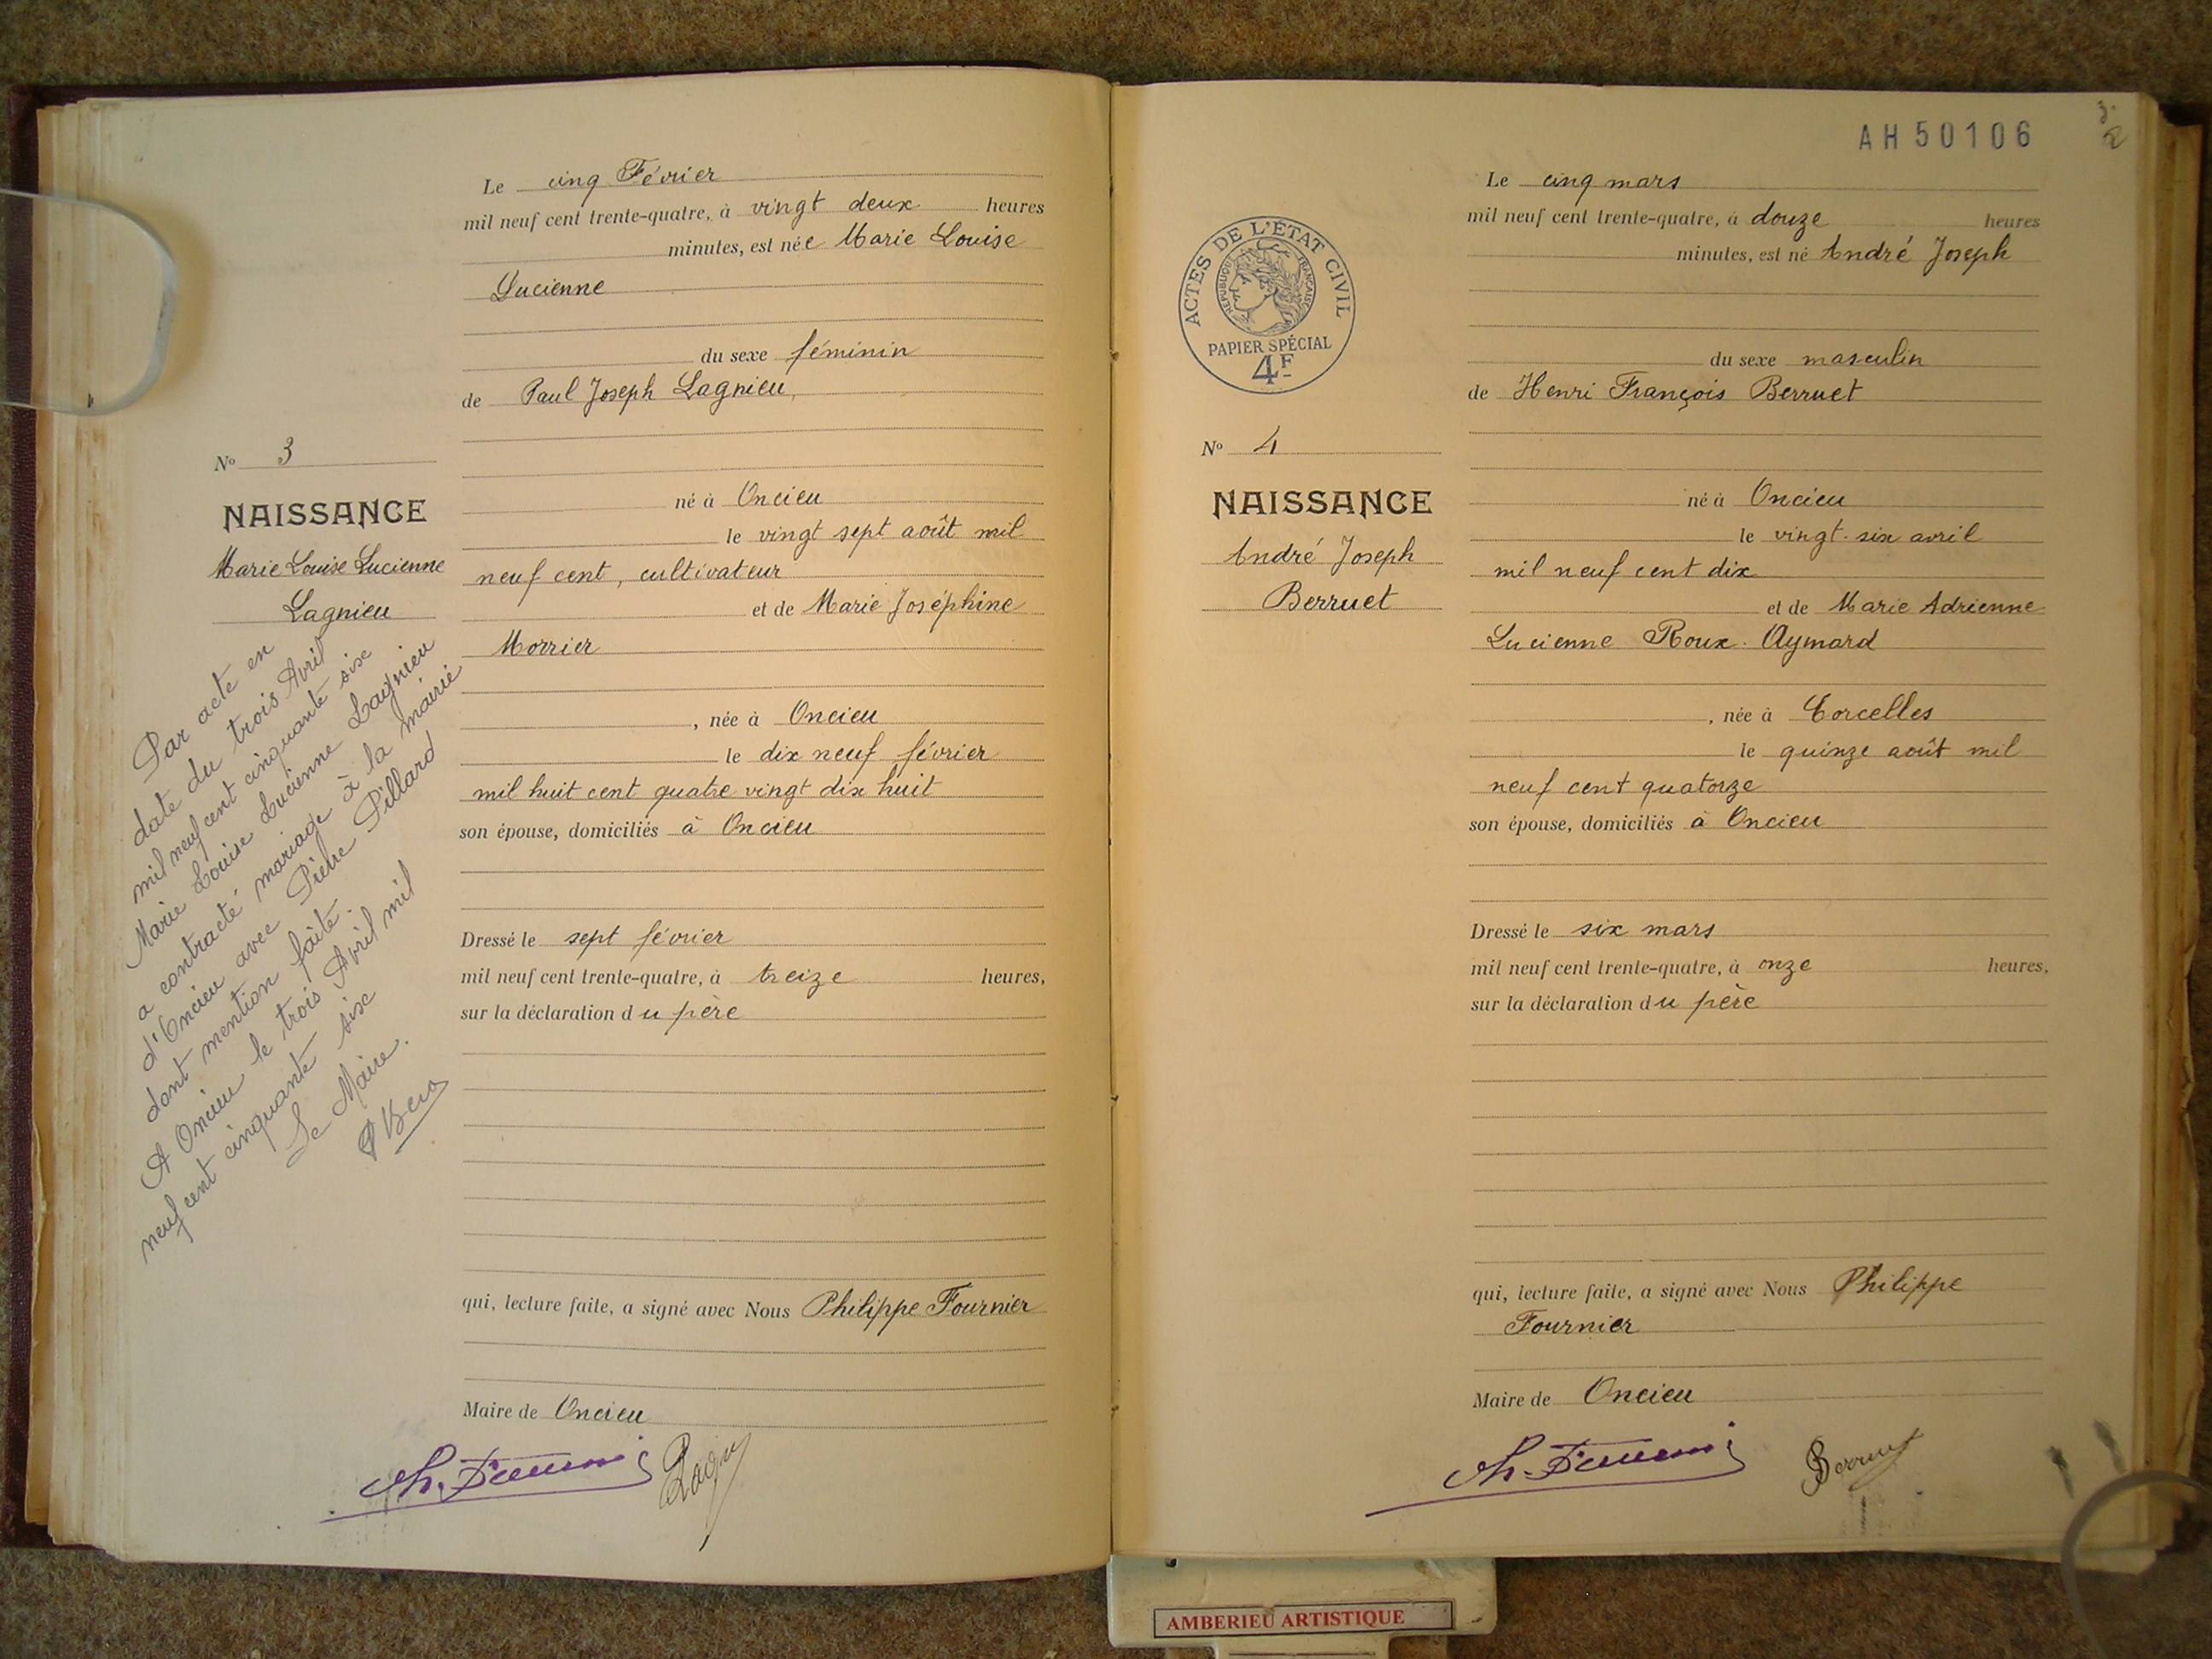 Le cinq Février
mil neuf cent trente-quatre, à vingt deux heures
minutes, est née Marie Louise
Lucienne
du sexe féminin
de Paul Joseph Lagnieu,
né à Oncieu
le vingt sept août mil
neuf cent, cultivateur
et de Marie Joséphine
Morrier
, née à Oncieu
le dix neuf février
mil huit cent quatre vingt dix huit
son épouse, domiciliés à Oncieu
Dressé le sept février
mil neuf cent trente-quatre, à treize heures,
sur la déclaration du père
qui, lecture faite, a signé avec Nous Philippe Fournier
Maire de Oncieu
No 3
NAISSANCE
Marie Louise Lucienne
Lagnieu
Par acte en
date du trois Avril
mil neuf cent cinquante six
Marie Louise Lucienne Lagnieu
a contracté mariage à la mairie
d'Oncieu avec Pierre Pillard
dont mention faite.
A Oncieu le trois Avril mil
neuf cent cinquante six
Le Maire.
AH 50106
ACTES DE L'ÉTAT CIVIL
RÉPUBLIQUE FRANÇAISE
PAPIER SPÉCIAL
4F
No 4
NAISSANCE
André Joseph
Berruet
Le cinq mars
mil neuf cent trente-quatre, à douze heures
minutes, est né André Joseph
du sexe masculin
de Henri François Berruet
né à Oncieu
le vingt-six avril
mil neuf cent dix
et de Marie Adrienne
Lucienne Roux-Aymard
, née à Corcelles
le quinze août mil
neuf cent quatorze
son épouse, domiciliés à Oncieu
Dressé le six mars
mil neuf cent trente-quatre, à onze heures,
sur la déclaration du père
qui, lecture faite, a signé avec Nous Philippe
Fournier
Maire de Oncieu
Berruet
AMBERIEU ARTISTIQUE